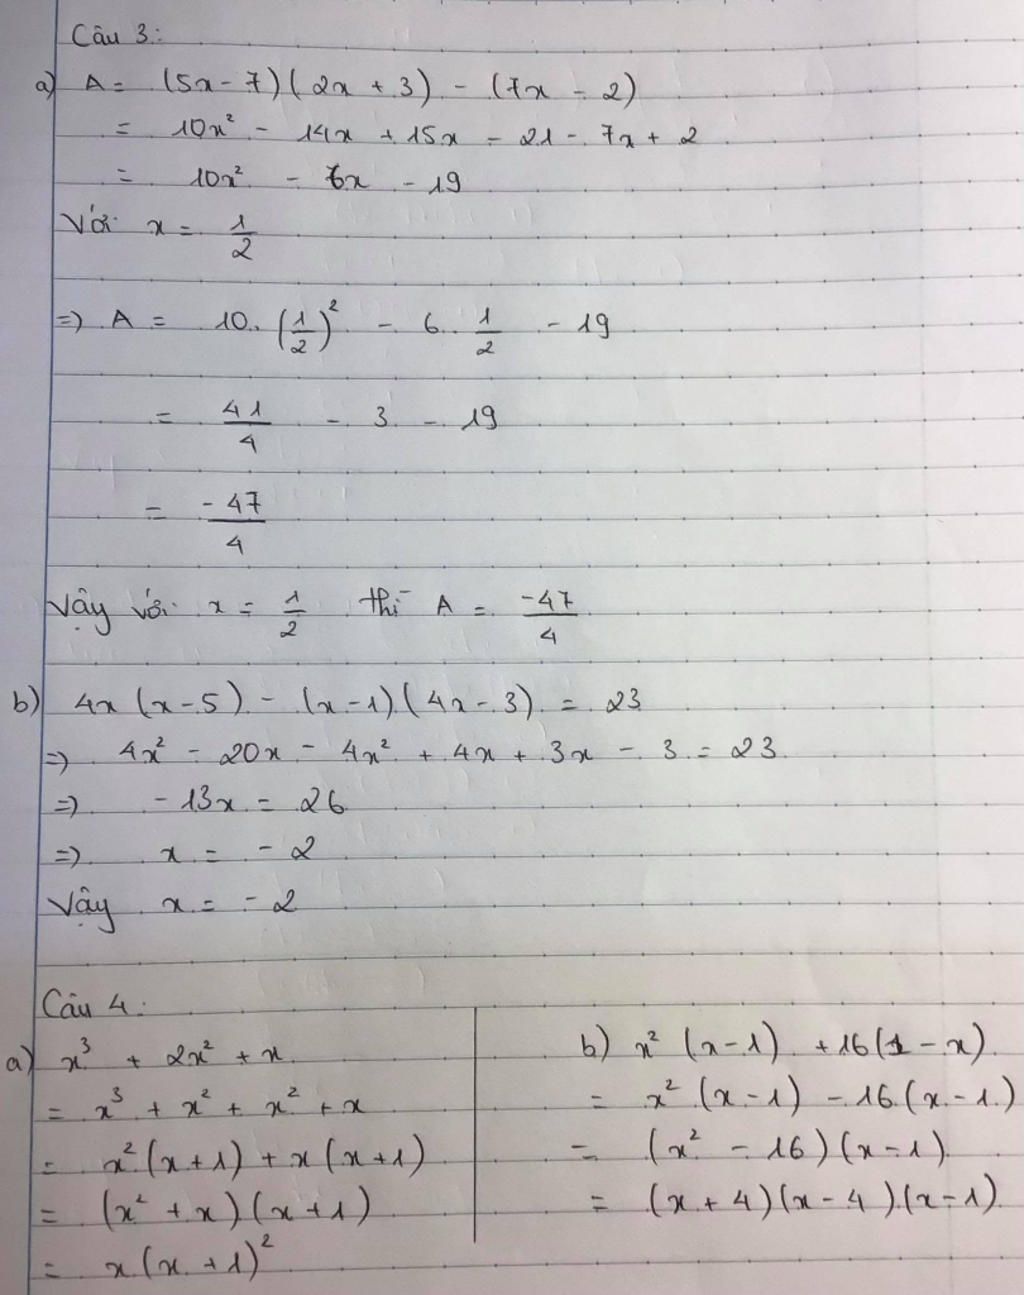 Câu 3:
a) A = (5x - 7)(2x + 3) - (7x - 2)
= 10x² - 14x + 15x - 21 - 7x + 2
= 10x² - 6x - 19
Với x = 1/2
=> A = 10. (1/2)² - 6. 1/2 - 19
= 41/4 - 3 - 19
= -47/4
Vậy với x = 1/2 thì A = -47/4
b) 4x (x - 5) - (x - 1)(4x - 3) = 23
=> 4x² - 20x - 4x² + 4x + 3x - 3 = 23
=> - 13x = 26
=> x = - 2
Vậy x = - 2
Câu 4:
a) x³ + 2x² + x
= x³ + x² + x² + x
= x² (x + 1) + x (x + 1)
= (x² + x) (x + 1)
= x (x + 1)²
b) x² (x - 1) + 16 (1 - x)
= x² (x - 1) - 16 (x - 1)
= (x² - 16) (x - 1)
= (x + 4)(x - 4)(x - 1)